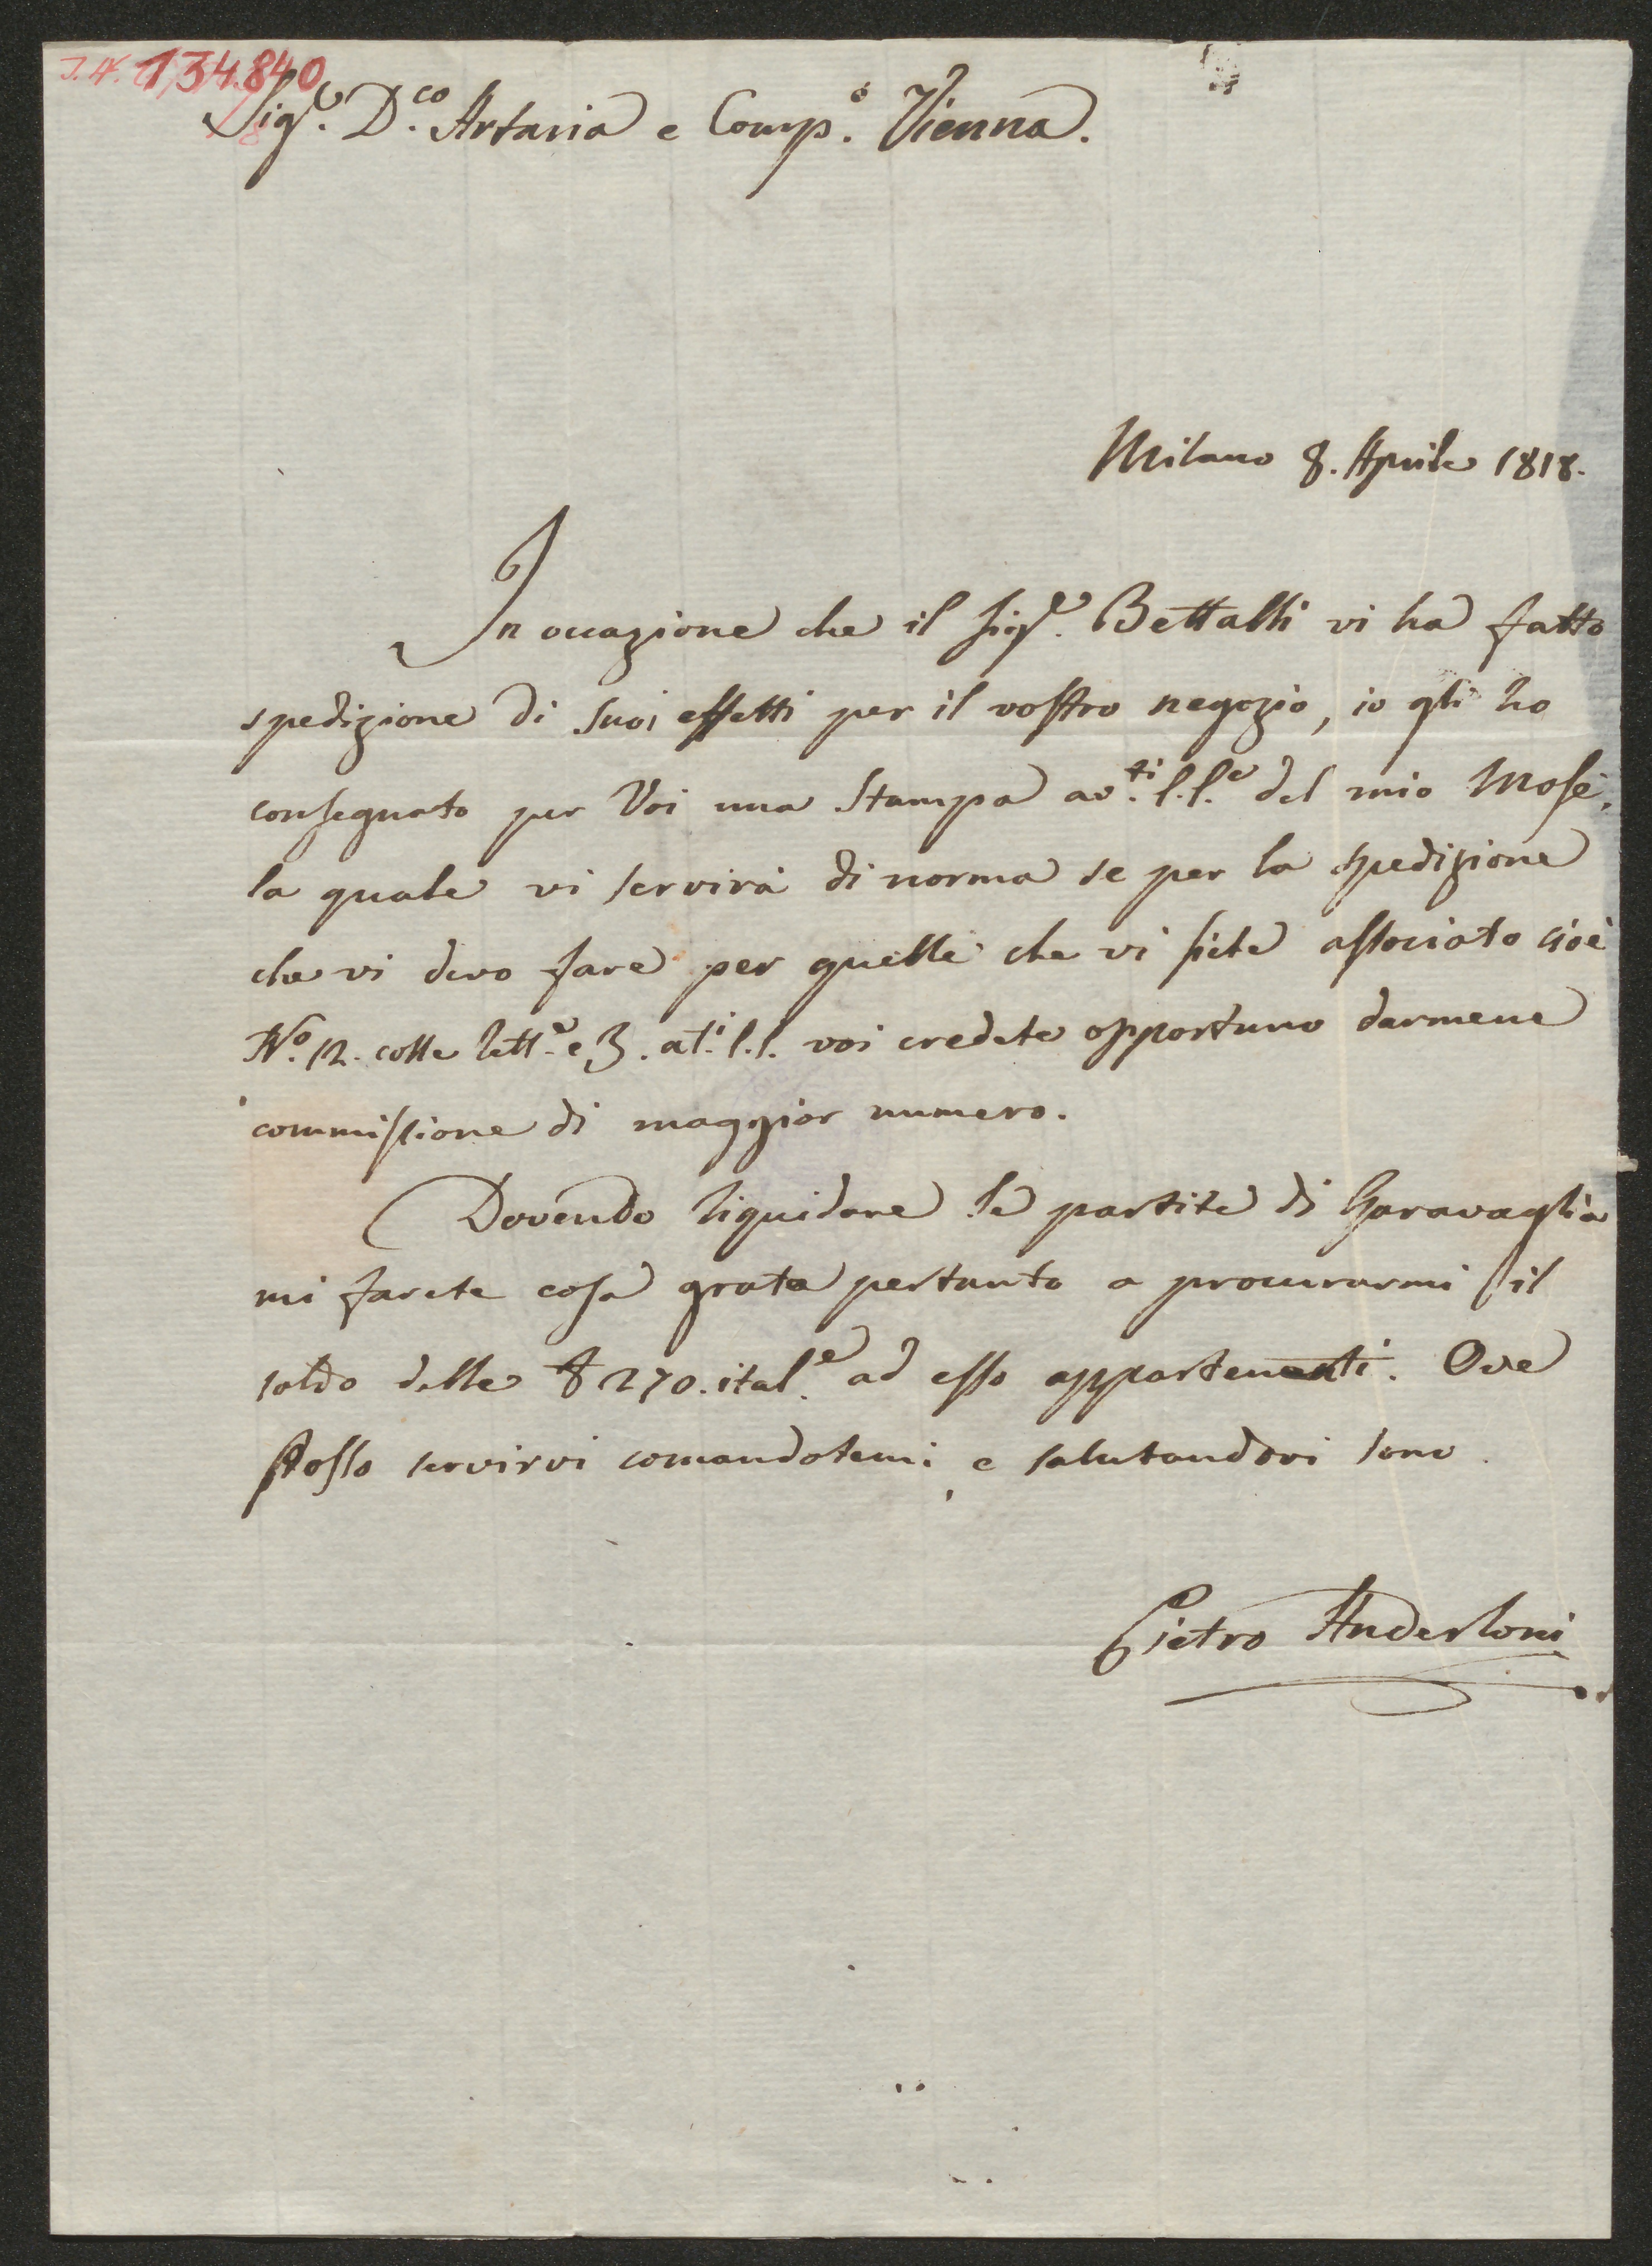 I.N. 134.840
Sigr. D.co Artaria e Comp.o Vienna.
Milano 8. Aprile 1818.
In occazione che il Sigr. Bettalli vi ha fatto
spedizione di suoi effetti per il vostro negozio, io gli ho
consegnato per Voi una Stampa av.ti l.l.e del mio Mosè,
la quale vi servirà di norma se per la spedizione
che vi devo fare per quelle che vi siete associato cioè
No. 12. colle lett.e e 3. at.i l.l. voi credete opportuno darmene
commissione di maggior numero.
Dovendo liquidare le partite di Garavaglia
mi farete cosa grata pertanto a procurarmi il
soldo delle 270. ital.e ad esso appartenenti. Ove
posso servirvi comandatemi, e salutandovi sono
Pietro Anderloni